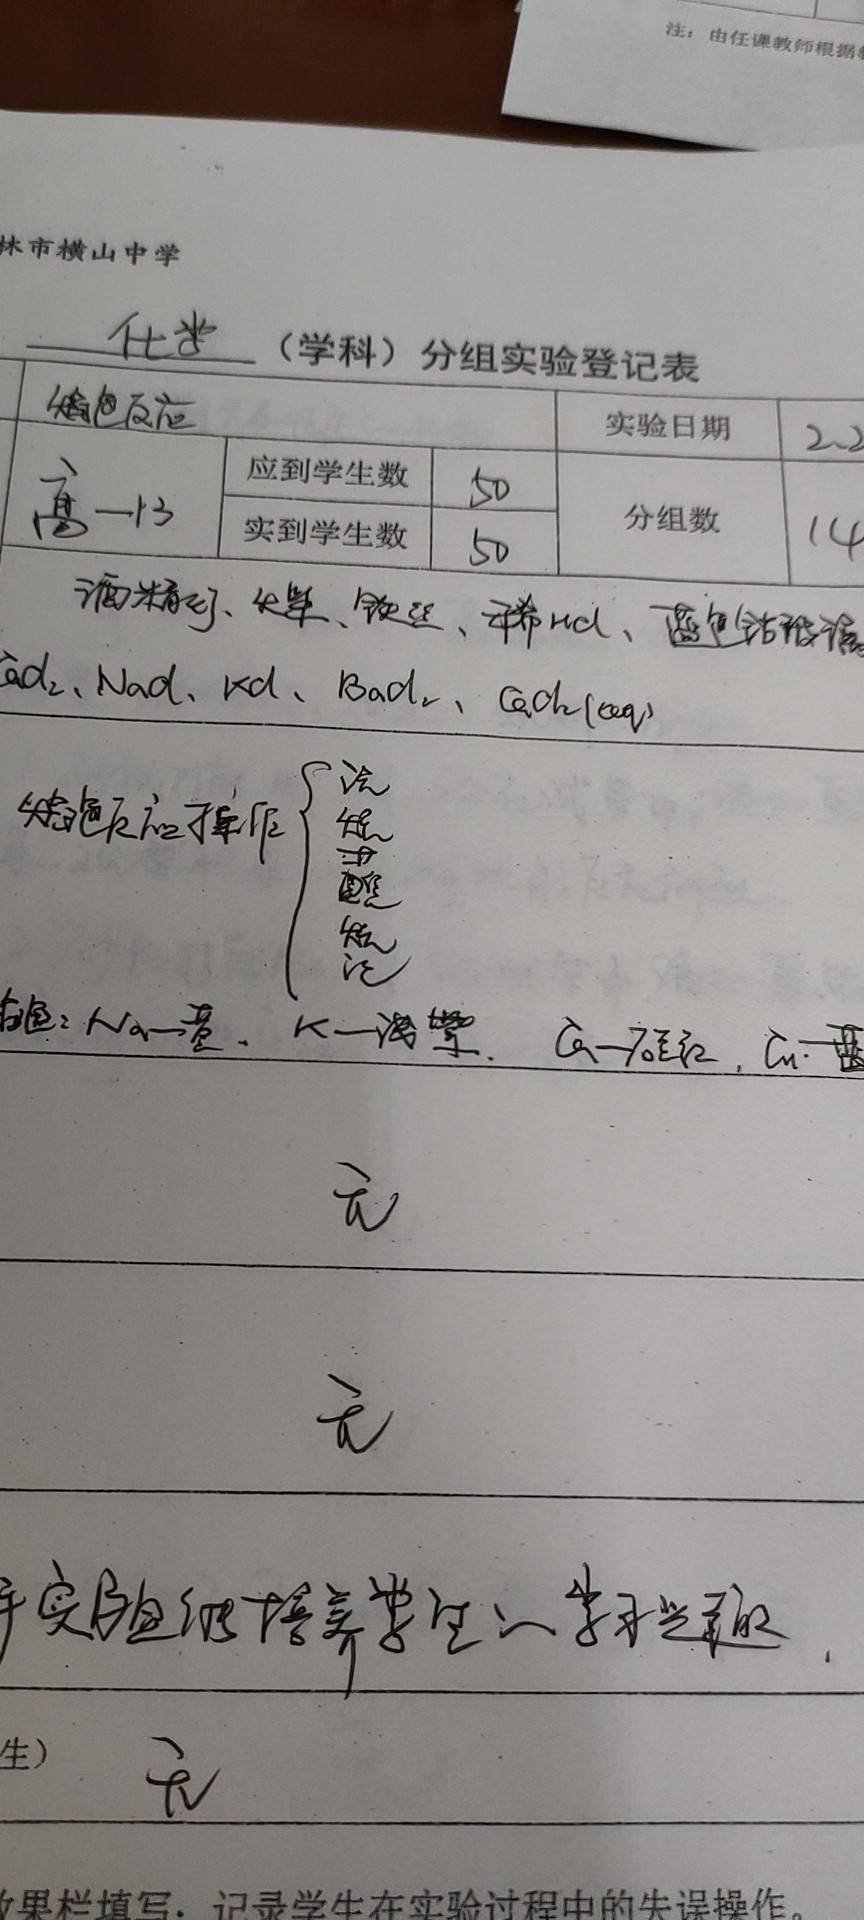 注：由任课教师根据
林市横山中学
化学（学科）分组实验登记表
焰色反应 实验日期 2.2
高一13 应到学生数 50 分组数 14
实到学生数 50
酒精灯、火柴、铁丝、稀HCl、蓝色钴玻璃
NaCl、KCl、BaCl₂、CaCl₂(aq)
焰色反应操作
洗
烧
蘸
烧
洗
焰色：Na—黄、K—浅紫、Ca—砖红，Cu—
无
无
实验能培养学生的学习兴趣，
生） 无
效果栏填写：记录学生在实验过程中的失误操作。